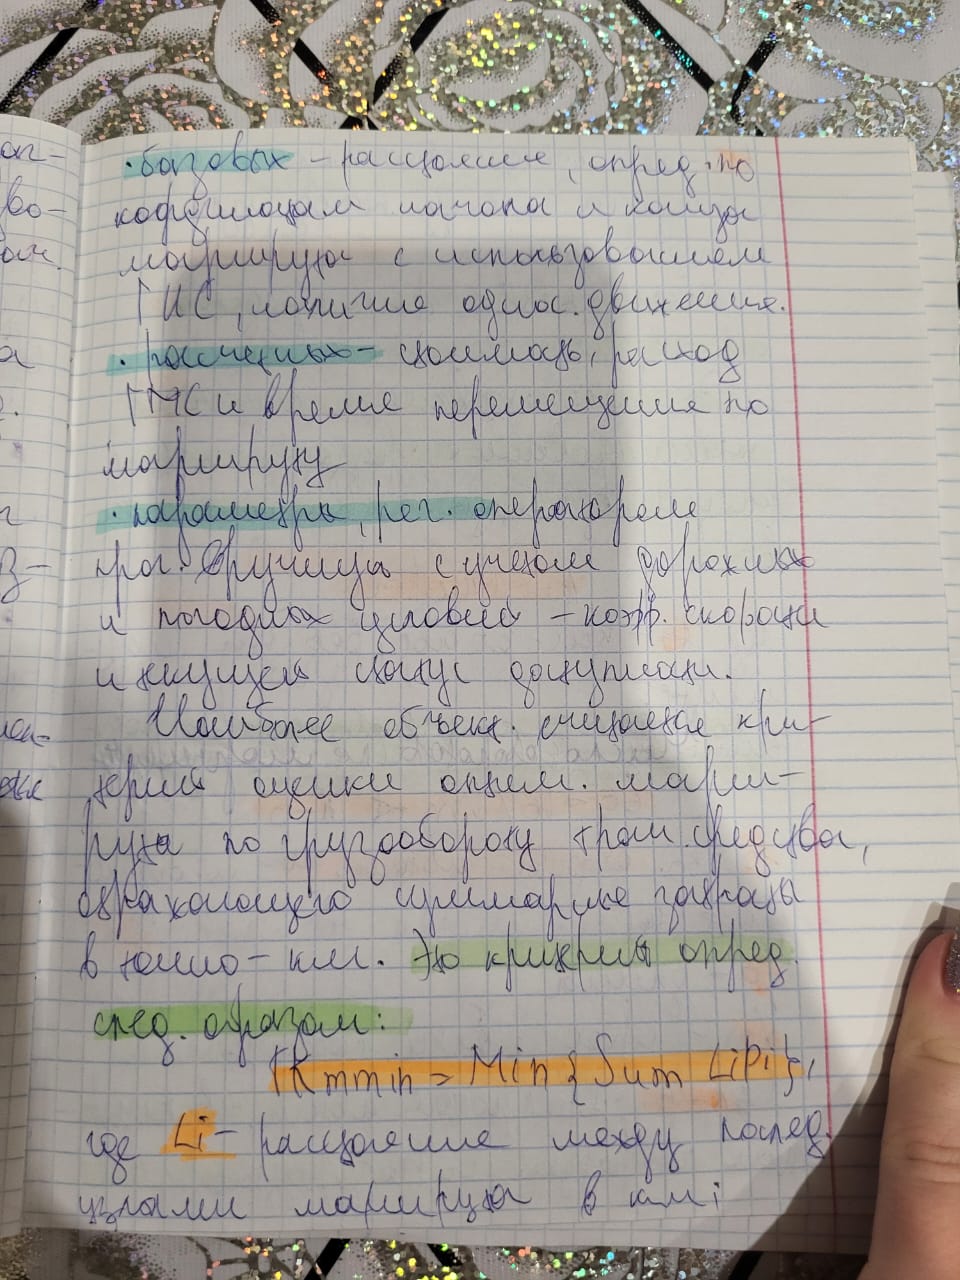 · базовых – расстояние, опред. по
коффициентам начала и конца
маршрута с использованием
ГИС, наличие одност. движения.
· расчетных – стоимость, расход
ГМС и время перемещение по
маршруту
· параметры, рег. оператором
при вручную с учетом дорожных
и погодных условий – коэфф. скорости
и текущей статус доступности.
Наиболее объект. считается кри-
терий оценки оптим. марш-
рута по грузообороту трам. средства,
отражающего суммарные затраты
в тонно-км. Это критерий опред.
след. образом:
TKmmin = Min {Sum LiPi},
где Li – расстояние между послед.
узлами маршрута в км;
ог-
во-